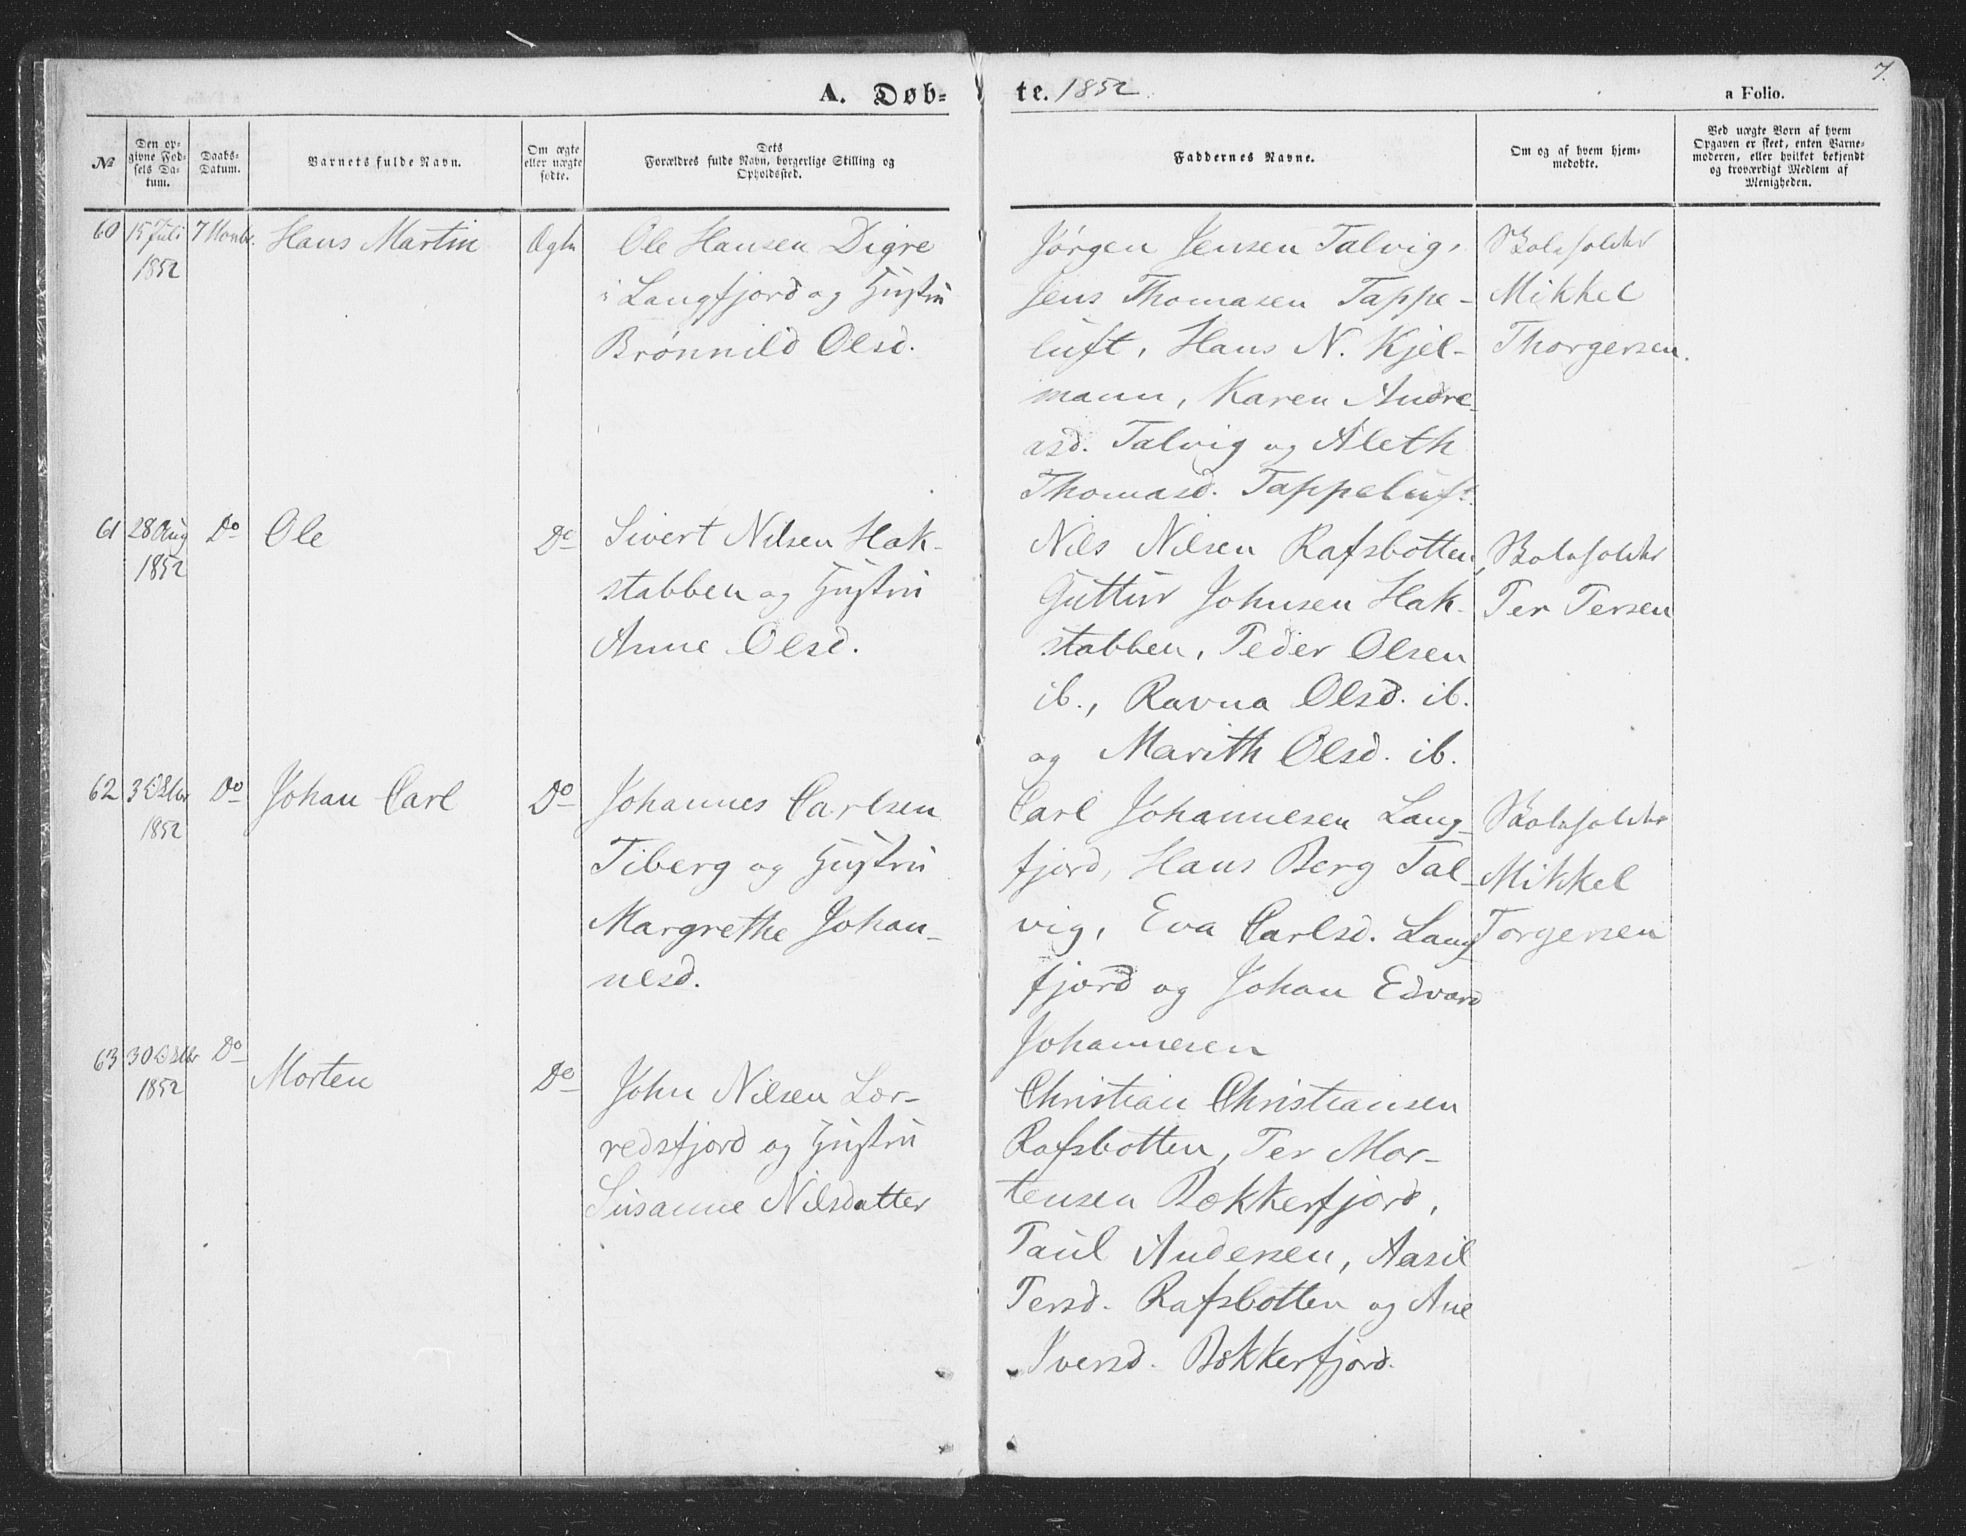 7.
A. Døb-
te. 1852.
a Folio.
№
Den op-
givne Fød-
sels Da-
tum.
Daabs-
Datum.
Barnets fulde Navn.
Om ægte
eller uægte
fødte.
Dets
Forældres fulde Navn, borgerlige Stilling og
Opholdssted.
Faddernes Navne.
Om og af hvem hjem-
medøbte.
Ved uægte Børn af hvem
Opgaven er skeet, enten Barne-
moderen, eller hvilket bekjendt
og troværdigt Medlem af
Menigheden.
60
15 Juli
1852
7 Novbr.
Hans Martin
Ægte
Ole Hansen Digre
i Langfjord og Hustru
Brønnild Olsd.
Jørgen Jensen Talvig,
Jens Thomasen Tappe-
luft, Hans N. Kjel-
mann, Karen Andre-
asd. Talvig og Aleth
Thomasd. Tappeluft.
Skoleholder
Mikkel
Thorgersen.
61
28 Aug
1852
Do
Ole
Do
Sivert Nilsen Hak-
stabben og Hustru
Anne Olsd.
Nils Nilsen Rafsbotten,
Guttur Johnsen Hak-
stabben, Peder Olsen
ib., Ravna Olsd. ib.
og Marith Olsd. ib.
Skoleholder
Per Persen
62
3 Octbr
1852
Do
Johan Carl
Do
Johannes Carlsen
Tiberg og Hustru
Margrethe Johan-
nesd.
Carl Johannesen Lang-
fjord, Hans Berg Tal-
vig, Eva Carlsd. Lang-
fjord og Johan Edvard
Johannesen
Skoleholder
Mikkel
Torgersen
63
30 Octbr
1852
Do
Morten
Do
John Nilsen Lær-
redsfjord og Hustru
Susanne Nilsdatter
Christian Christiansen
Rafsbotten, Per Mor-
tensen Bekkerfjord,
Paul Andersen, Aasil
Persd. Rafsbotten og Ane
Iversd. Bekkerfjord.